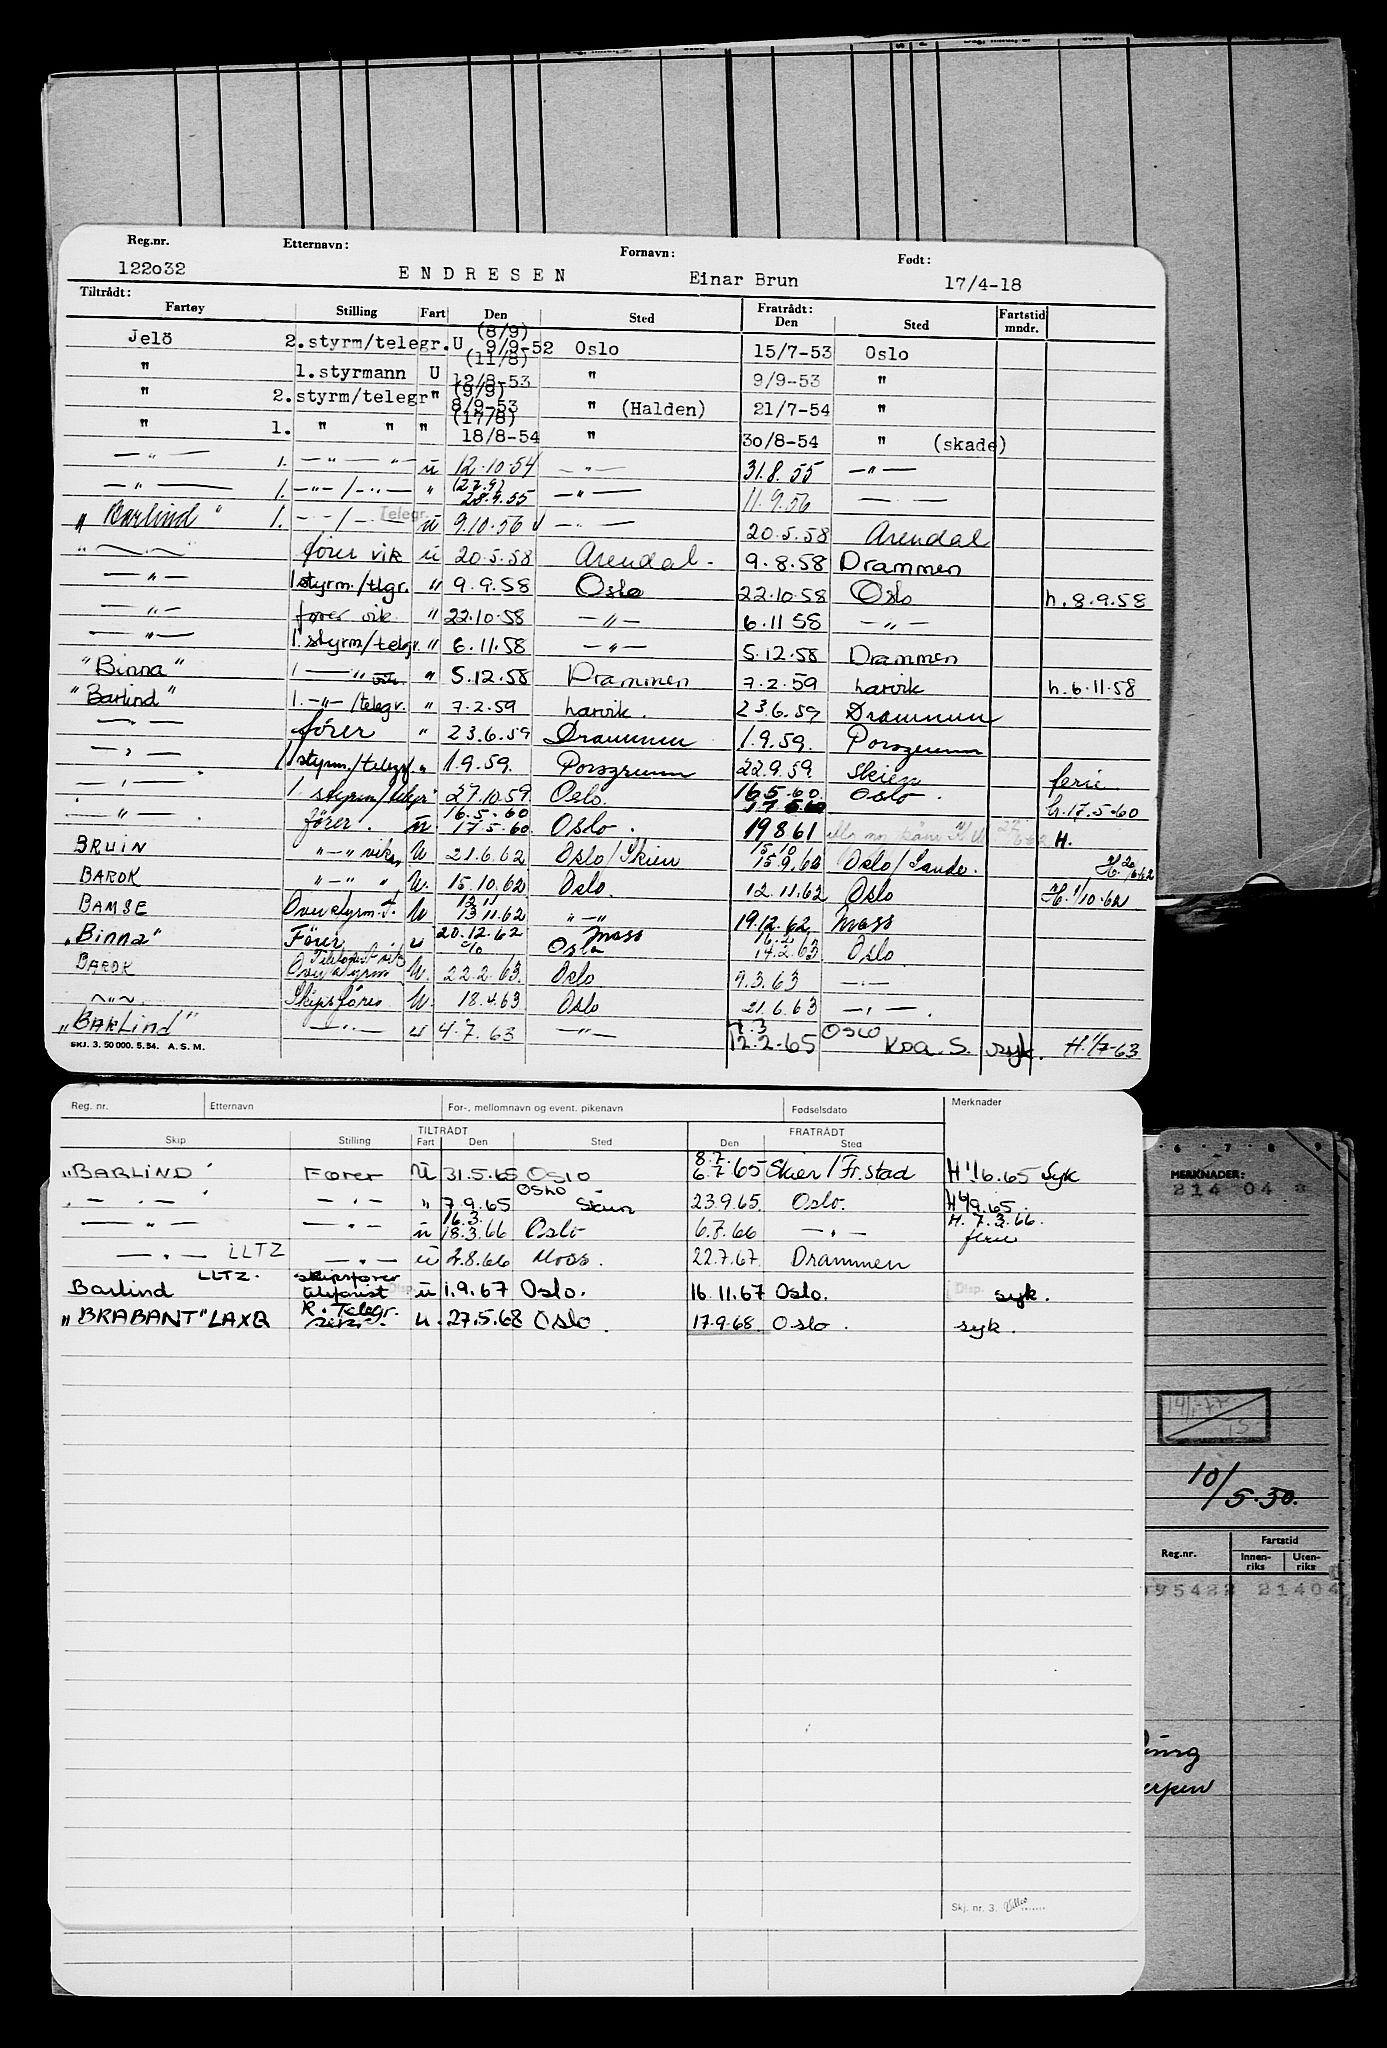 Reg.nr. Etternavn: Fornavn: Født:
122o32 ENDRESEN Einar Brun 17/4-18
Tiltrådt: Fratrådt:
Fartøy Stilling Fart Den Sted Den Sted Fartstid mndr.
Jelö 2.styrm/telegr. U (8/9) 9/9-52 Oslo 15/7-53 Oslo
" 1.styrmann U (11/8) 12/8-53 " 9/9-53 "
" 2.styrm/telegr " (9/9) 8/9-53 " (Halden) 21/7-54 "
" 1. " " " (17/8) 18/8-54 " 3o/8-54 " (skade)
— " — 1. — " — " — u 12.10.54 — " — 31.8.55 — " —
— " — 1. — " — / — " — " (27.9) 28.9.55 — " — 11.9.56 — " —
"Barlind" 1. — " — / — Telegr. u 9.10.56 — " — 20.5.58 Arendal
— " — fører vik u 20.5.58 Arendal. 9.8.58 Drammen
— " — 1 styrm./tlgr. " 9.9.58 Oslo 22.10.58 Oslo h. 8.9.58
— " — fører vik " 22.10.58 — " — 6.11.58 — " —
— " — 1. styrm/telegr. " 6.11.58 — " — 5.12.58 Drammen
"Binna" 1 — " " 5.12.58 Drammen 7.2.59 Larvik h. 6.11.58
"Barlind" 1. — " — /telegr. " 7.2.59 Larvik. 23.6.59 Drammen
— " — fører " 23.6.59 Drammen 1.9.59. Porsgrunn
— " — 1 styrm./telegr. " 1.9.59. Porsgrunn 22.9.59. Skien ferie
— " — 1 styrm/telegr " 27.10.59 Oslo. 16.5.60. 17.5.60 Oslo. h. 17.5-60
— " — fører. u. 16.5.60 17.5.60. Oslo. 19 8 61 H.
BRUIN " — " vik U 21.6.62 Oslo/Skien 15.10 15.9.62 Oslo/Sande. H. 20/6 62
BAROK " — " " U. 15.10.62 Oslo. 12.11.62 Oslo H. 1/10.62
BAMSE Overstyrm. T. U 12 11 13 11.62 " — " 19.12.62 Moss
"Binna" Förer u 20.12.62 Moss Oslo 14.2.63 Oslo
BAROK Telefonist vik Overstyrm U. 22.2.63. Oslo 9.3.63 — " —
— " — Skipsfører U. 18.4.63 Oslo 21.6.63 — " — .
"BARLind" — " — u 4.7.63 — " — 7.3 12.2-65 OSLO Koa. S. syk. H. 1/7-63
SKJ. 3. 50 000. 5. 54. A. S. M.
Reg. nr. Etternavn For-, mellomnavn og event. pikenavn Fødselsdato Merknader
TILTRÅDT FRATRÅDT
Skip Stilling Fart Den Sted Den Sted
"BARLIND" Fører U 31.5.65 OSLO 8.7. 6.7.65 Skien/Fr.stad H 1/6.65 Syk
— " — — " — " 7.9.65 OSLO Skien 23.9.65 Oslo. H 6/9.65.
— " — — " — u 16.3. 18.3.66 Oslo 6.7.66 — " — H. 7.3.66. ferie
— " — LLTZ — " — u 2.8.66 Moss. 22.7.67. Drammen
Barlind LLTZ. skipsfører telefonist Disp. u 1.9.67 Oslo. 16.11.67 Oslo. Disp. syk.
"BRABANT" LAXQ R. Telegr. u. 27.5.68 Oslo. 17.9.68. Oslo. syk.
Skj. nr. 3.
6 · 7 · 8 · 9
MERKNADER:
214 04
10/5.50.
Reg.nr. Fartstid
Innen-riks Uten-riks
95422 21404